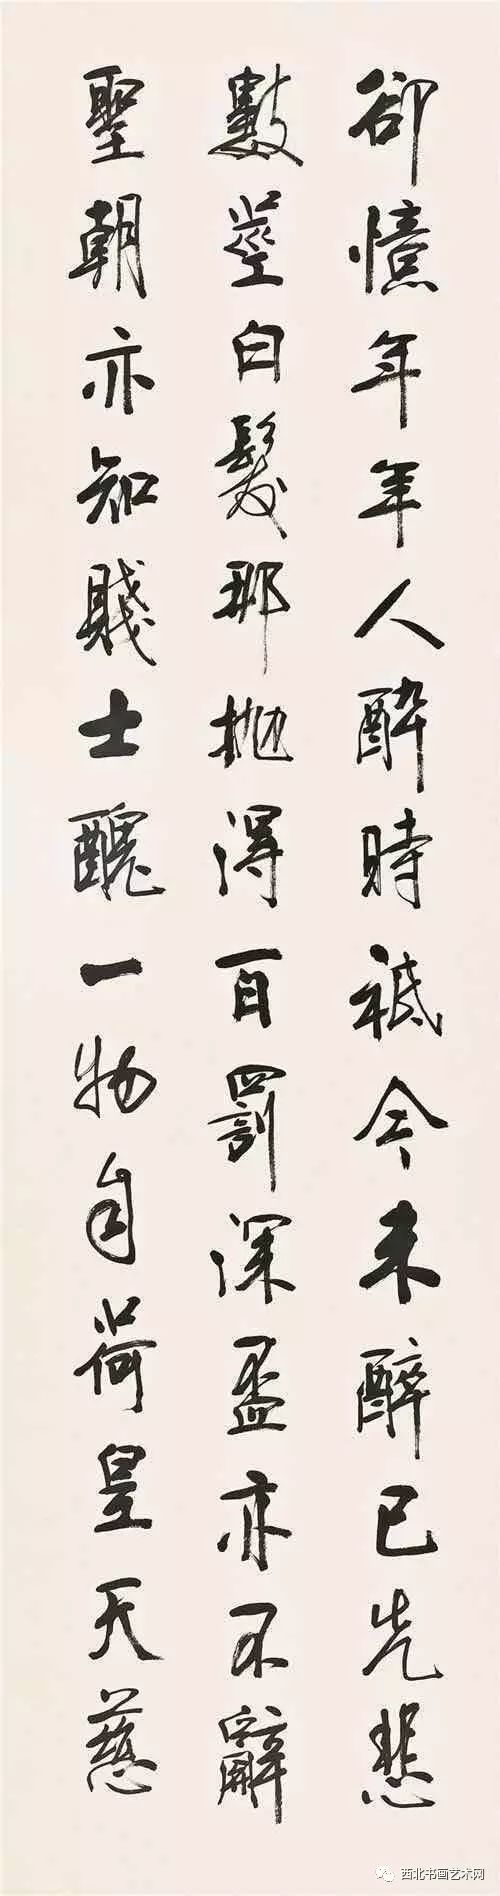 卻憶年年人酔時祗今未醉已先悲
數莖白髮那拋得百罰深盃亦不辭
聖朝亦知賤士醜一物自荷皇天慈
西北书画艺术网